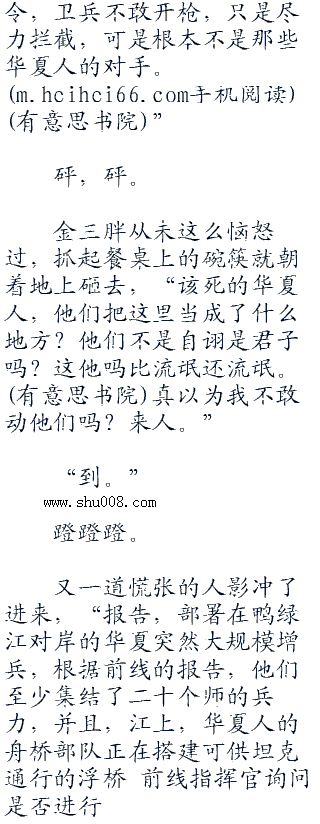 令，卫兵不敢开枪，只是尽
力拦截，可是根本不是那些
华夏人的对手。
(m.hcihci66.com手机阅读)
(有意思书院)”
砰，砰。
金三胖从未这么恼怒
过，抓起餐桌上的碗筷就朝
着地上砸去，“该死的华夏
人，他们把这里当成了什么
地方？他们不是自诩是君子
吗？这他吗比流氓还流氓。
(有意思书院)真以为我不敢
动他们吗？来人。”
“到。”
www.shu008.com
蹬蹬蹬。
又一道慌张的人影冲了
进来，“报告，部署在鸭绿
江对岸的华夏突然大规模增
兵，根据前线的报告，他们
至少集结了二十个师的兵
力，并且，江上，华夏人的
舟桥部队正在搭建可供坦克
通行的浮桥 前线指挥官询问
是否进行